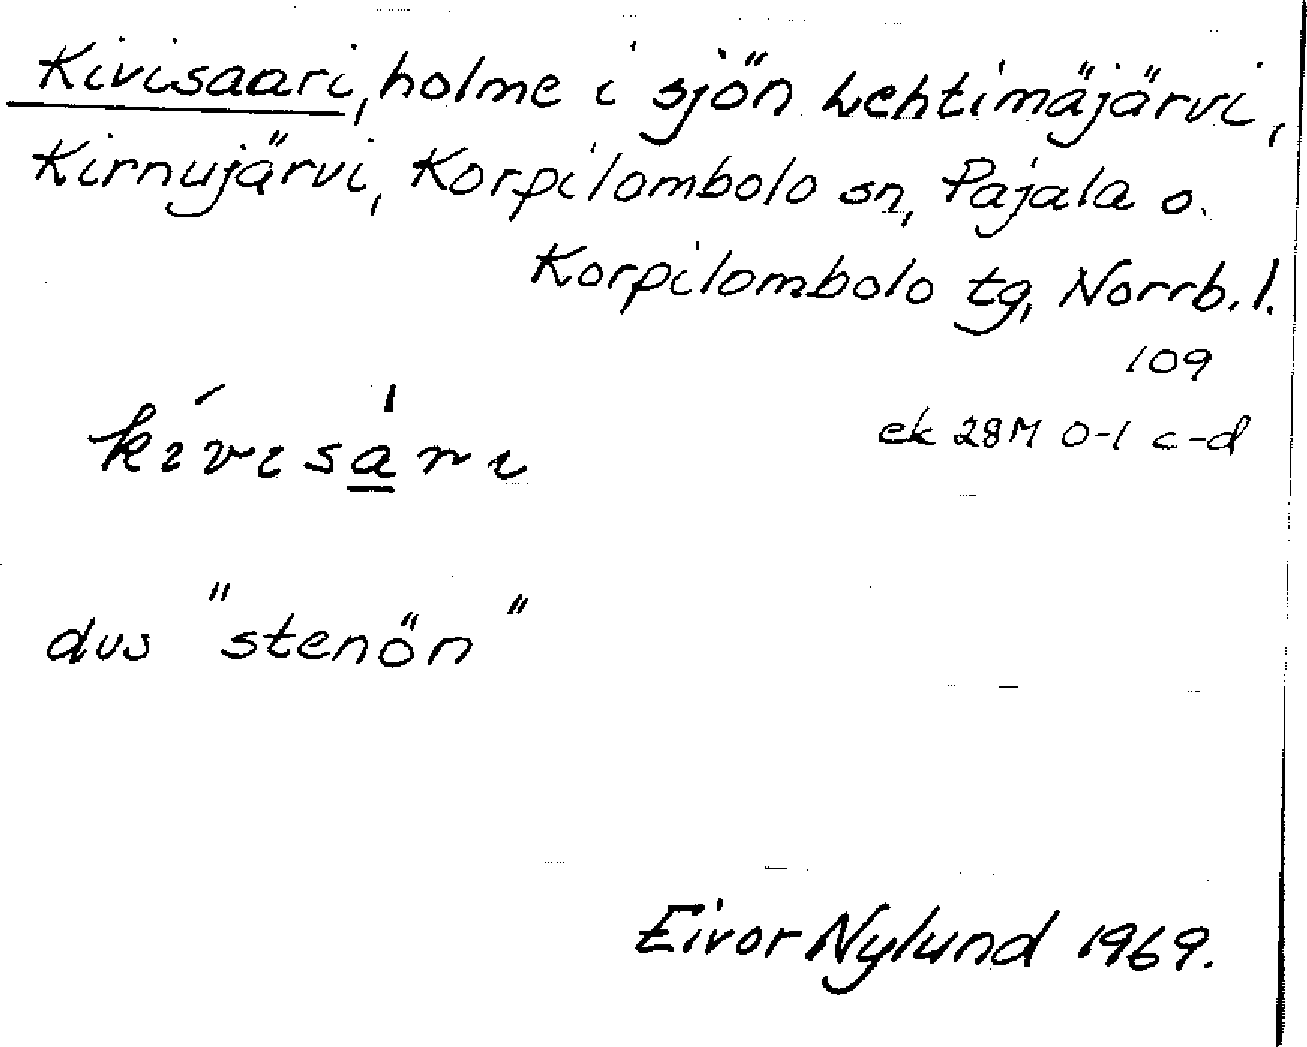 Kivisaari, holme i sjön Lehtimäjärvi,
Kirnujärvi, Korpilombolo sn, Pajala o.
Korpilombolo tg, Norrb. l.
109
ek 28M 0-1 c-d
kívisa̲ri
dvs "stenön"
Eivor Nylund 1969.